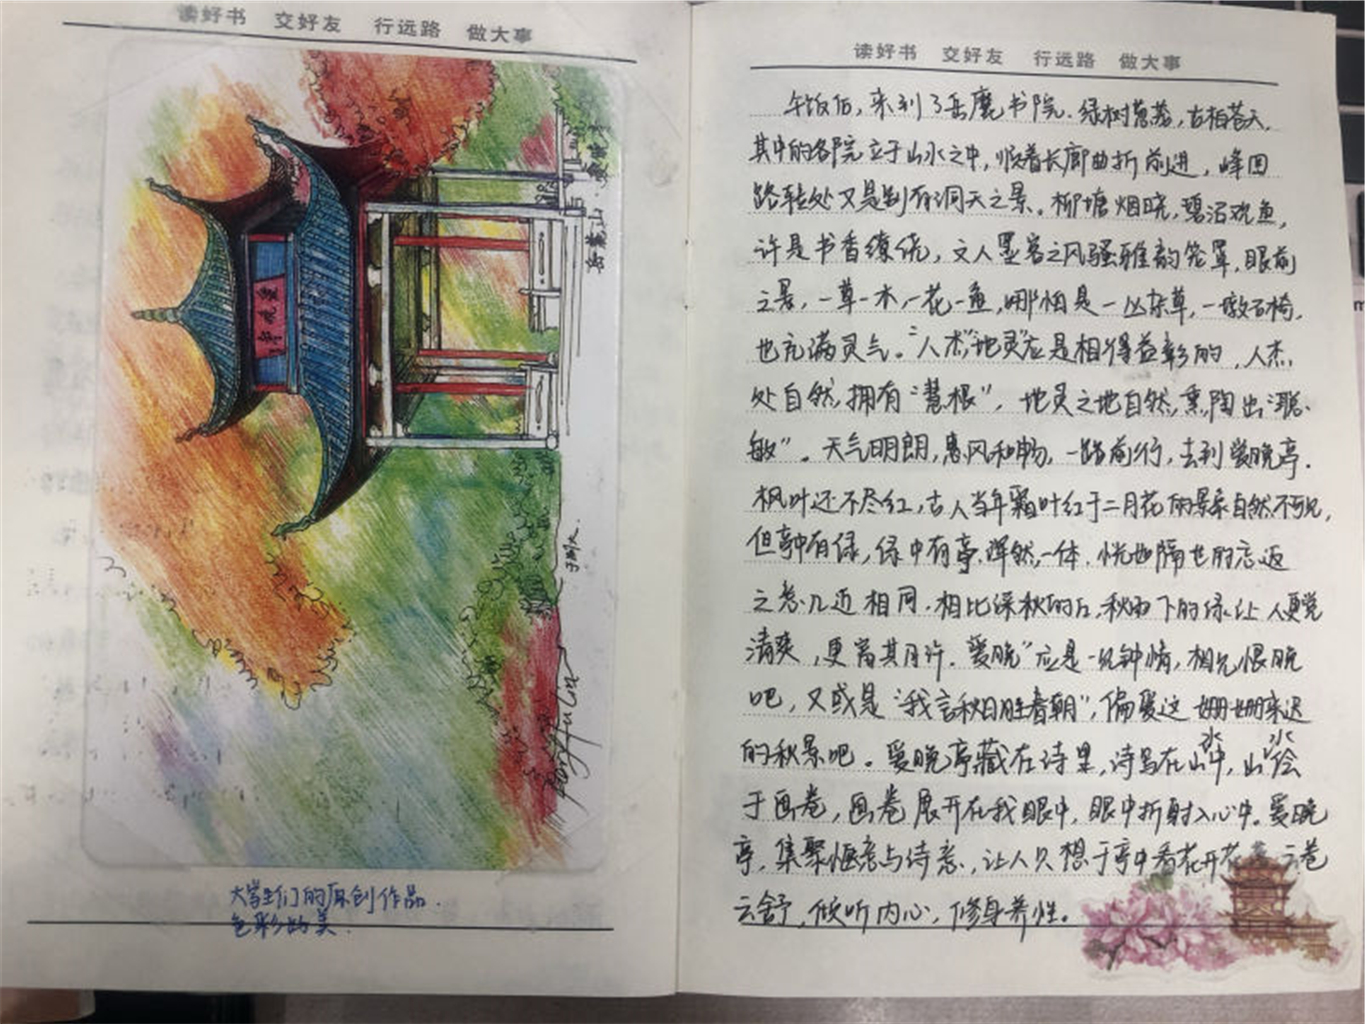 读好书 交好友 行远路 做大事
爱晚亭
岳麓山·爱晚亭
大学生们的原创作品.
色彩的美.
读好书 交好友 行远路 做大事
午饭后，来到了岳麓书院.绿树葱茏，古柏苍天，
其中的各院立于山水之中，顺着长廊曲折前进，峰回
路转处又是别有洞天之景。柳塘烟晓，碧沼观鱼，
许是书香缭绕，文人墨客之风骚雅韵笼罩，眼前
之景，一草一木，一花一鱼，哪怕是一丛杂草，一墩石椅，
也充满灵气。“人杰”“地灵”应是相得益彰的，人杰
处自然拥有“慧根”，地灵之地自然熏陶出“聪
敏”。天气明朗，惠风和畅，一路前行，去到爱晚亭.
枫叶还不尽红，古人当年霜叶红于二月花的景象自然不可见，
但亭中有绿，绿中有亭，浑然一体.恍如隔世的忘返
之意几近相同.相比深秋的红，秋雨下的绿让人更觉
清爽，更富其月许.“爱晚”应是一见钟情，相见恨晚
吧，又或是“我言秋日胜春朝”，偏爱这姗姗来迟
的秋景吧。爱晚亭藏在诗里，诗写在山水中，山水绘
于画卷，画卷展开在我眼中，眼中折射入心中。爱晚
亭，集聚惬意与诗意，让人只想于亭中看花开花 云卷
云舒，倾听内心，修身养性。